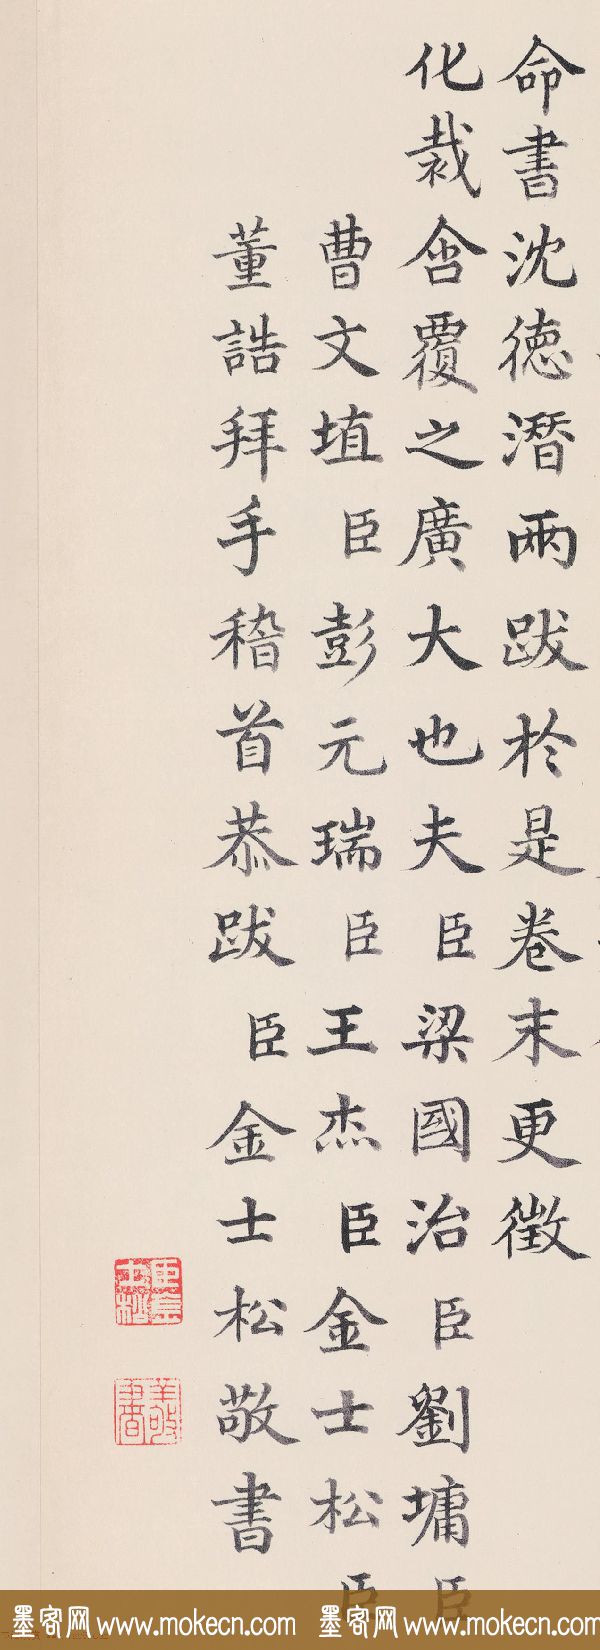 命書沈德潛兩跋於是卷末更徵
化裁含覆之廣大也夫臣梁國治臣劉墉臣
曹文埴臣彭元瑞臣王杰臣金士松臣
董誥拜手稽首恭跋臣金士松敬書
臣金士松
敬書
墨客网 www.mokecn.com 墨客网 www.mokecn.com